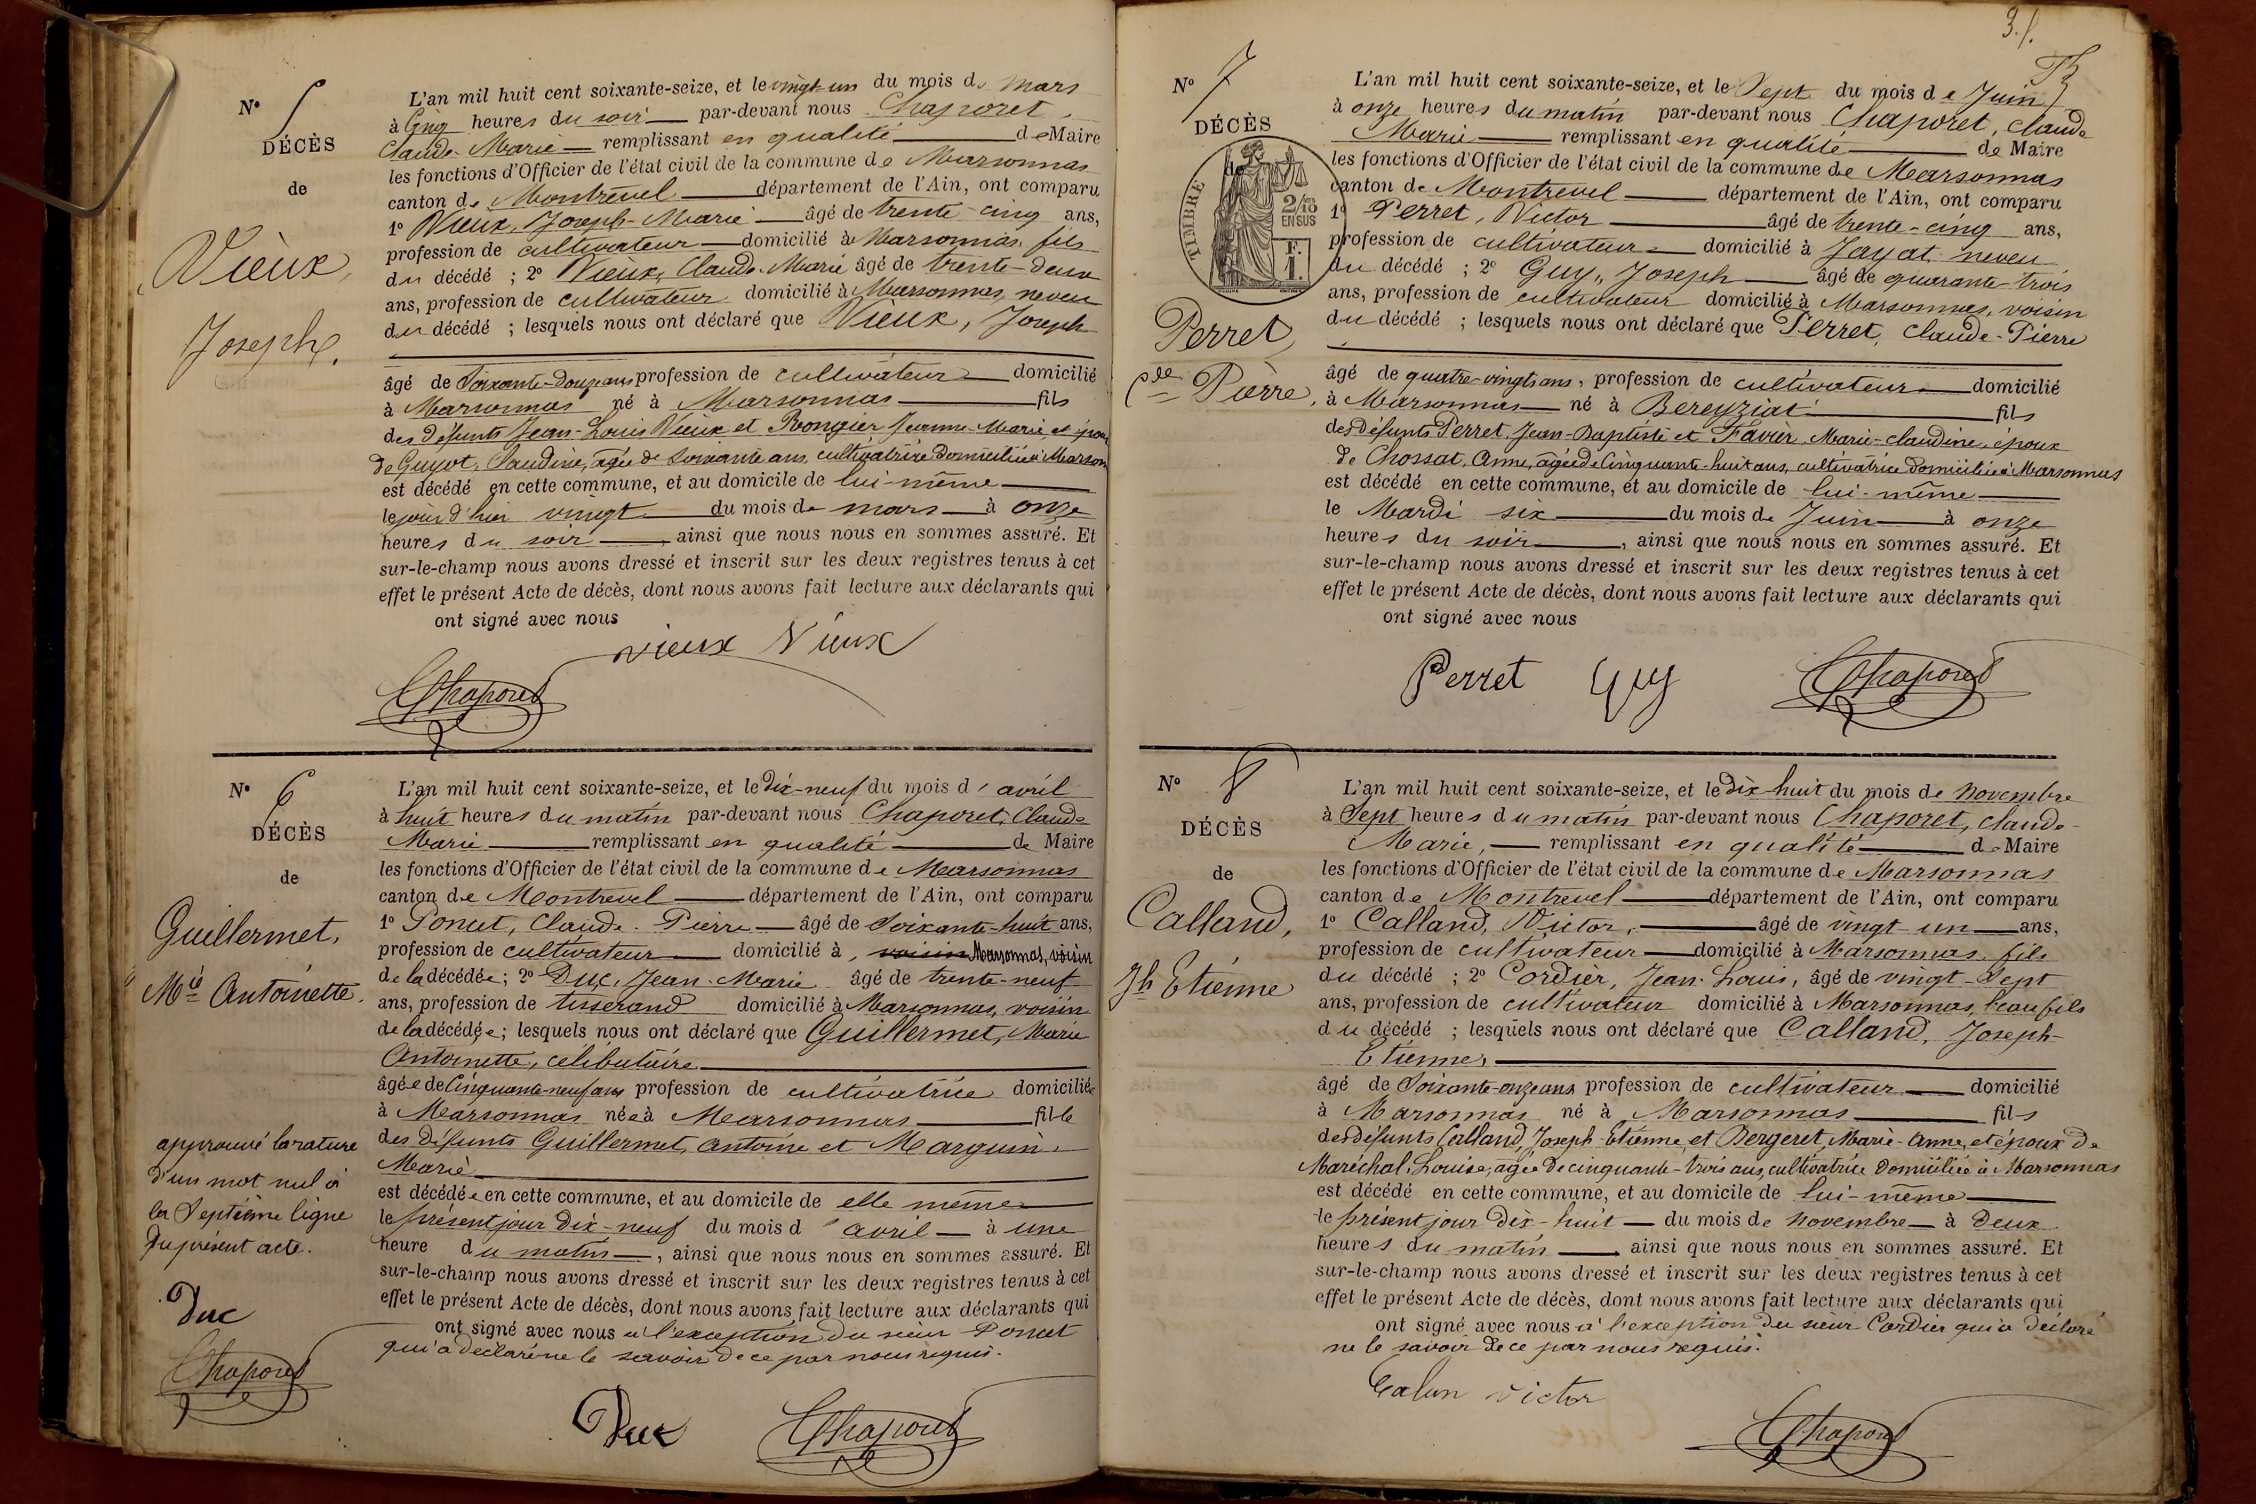 N° 5
DÉCÈS
de
Vieux,
Joseph.
L'an mil huit cent soixante-seize, et le vingt-un du mois de Mars
à Cinq heures du soir par-devant nous Chaporet,
Claude-Marie remplissant en qualité de Maire
les fonctions d'Officier de l'état civil de la commune de Marsonnas
canton de Montrevel département de l'Ain, ont comparu
1° Vieux, Joseph-Marie âgé de trente-cinq ans,
profession de cultivateur domicilié à Marsonnas, fils
du décédé ; 2° Vieux, Claude-Marie âgé de trente-deux
ans, profession de cultivateur domicilié à Marsonnas, neveu
du décédé ; lesquels nous ont déclaré que Vieux, Joseph
âgé de Soixante-douze ans profession de cultivateur domicilié
à Marsonnas né à Marsonnas fils
des défunts Jean-Louis Vieux et Rongier Jeanne-Marie, et époux
de Guyot, Claudine, âgée de soixante ans, cultivatrice domiciliée à Marson
est décédé en cette commune, et au domicile de lui-même
le jour d'hier vingt du mois de mars à onze
heures du soir ainsi que nous nous en sommes assuré. Et
sur-le-champ nous avons dressé et inscrit sur les deux registres tenus à cet
effet le présent Acte de décès, dont nous avons fait lecture aux déclarants qui
ont signé avec nous
vieux Vieux
Chaporet
N° 6
DÉCÈS
de
Guillermet,
Mie Antoinette.
L'an mil huit cent soixante-seize, et le Dix-neuf du mois d'avril
à huit heures du matin par-devant nous Chaporet, Claude
Marie remplissant en qualité de Maire
les fonctions d'Officier de l'état civil de la commune de Marsonnas
canton de Montrevel département de l'Ain, ont comparu
1° Poncet, Claude-Pierre âgé de Soixante-huit ans,
profession de cultivateur domicilié à, voisin Marsonnas, voisin
de la décédée ; 2° Duc, Jean-Marie âgé de trente-neuf
ans, profession de tisserand domicilié à Marsonnas, voisin
de la décédée ; lesquels nous ont déclaré que Guillermet, Marie
Antoinette, célibataire
âgée de Cinquante-neuf ans profession de cultivatrice domiciliée
à Marsonnas née à Marsonnas fille
des défunts Guillermet, Antoine et Marguin,
Marie
est décédée en cette commune, et au domicile de elle même
le présent jour Dix-neuf du mois d'avril à une
heure du matin, ainsi que nous nous en sommes assuré. Et
sur-le-champ nous avons dressé et inscrit sur les deux registres tenus à cet
effet le présent Acte de décès, dont nous avons fait lecture aux déclarants qui
ont signé avec nous à l'exception du sieur Poncet
qui a déclaré ne le savoir de ce par nous requis.
approuvé la rature
d'un mot nul à
la Septième ligne
du présent acte.
Duc
Chaporet
Duc Chaporet
3.
N° 7
DÉCÈS
de
TIMBRE
2/10 EN SUS
F.
1.
Perret,
Cde Pierre.
L'an mil huit cent soixante-seize, et le Sept du mois de Juin
à onze heures du matin par-devant nous Chaporet, Claude
Marie remplissant en qualité de Maire
les fonctions d'Officier de l'état civil de la commune de Marsonnas
canton de Montrevel département de l'Ain, ont comparu
1° Perret, Victor âgé de trente-cinq ans,
profession de cultivateur domicilié à Jayat, neveu
du décédé ; 2° Guy, Joseph âgé de quarante-trois
ans, profession de cultivateur domicilié à Marsonnas, voisin
du décédé ; lesquels nous ont déclaré que Perret, Claude-Pierre
âgé de quatre-vingts ans, profession de cultivateur domicilié
à Marsonnas né à Bereyziat fils
des défunts Perret, Jean-Baptiste et Favier, Marie-Claudine, époux
de Chossat, Anne, âgée de Cinquante-huit ans, cultivatrice domiciliée à Marsonnas
est décédé en cette commune, et au domicile de lui-même
le Mardi six du mois de Juin à onze
heures du soir, ainsi que nous nous en sommes assuré. Et
sur-le-champ nous avons dressé et inscrit sur les deux registres tenus à cet
effet le présent Acte de décès, dont nous avons fait lecture aux déclarants qui
ont signé avec nous
Perret Guy Chaporet
N° 8
DÉCÈS
de
Calland,
Jh Etienne
L'an mil huit cent soixante-seize, et le dix-huit du mois de Novembre
à Sept heures du matin par-devant nous Chaporet, Claude-
Marie, remplissant en qualité de Maire
les fonctions d'Officier de l'état civil de la commune de Marsonnas
canton de Montrevel département de l'Ain, ont comparu
1° Calland, Victor, âgé de vingt un ans,
profession de cultivateur domicilié à Marsonnas, fils
du décédé ; 2° Cordier, Jean-Louis, âgé de vingt-Sept
ans, profession de cultivateur domicilié à Marsonnas, beau fils
du décédé ; lesquels nous ont déclaré que Calland, Joseph-
Etienne,
âgé de Soixante-onze ans profession de cultivateur domicilié
à Marsonnas né à Marsonnas fils
des défunts Calland, Joseph-Etienne, et Bergeret, Marie-Anne, et époux de
Maréchal, Louise, âgée de cinquante-trois ans, cultivatrice domiciliée à Marsonnas
est décédé en cette commune, et au domicile de lui-même
le présent jour dix-huit du mois de Novembre à Deux
heures du matin ainsi que nous nous en sommes assuré. Et
sur-le-champ nous avons dressé et inscrit sur les deux registres tenus à cet
effet le présent Acte de décès, dont nous avons fait lecture aux déclarants qui
ont signé avec nous à l'exception du sieur Cordier qui a déclaré
ne le savoir de ce par nous requis.
Calan victor
Chaporet